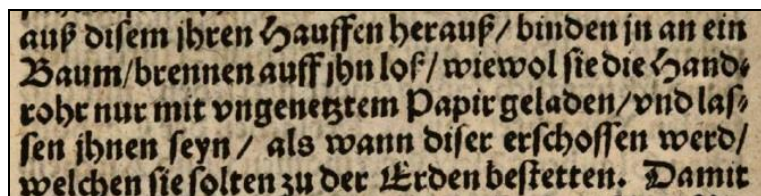 auß disem jhren Hauffen herauß/ binden jn an ein
Baum/brennen auff jhn loß/ wiewol sie die Hand⸗
rohr nur mit vngenetztem Papir geladen/vnd las⸗
sen jhnen seyn / als wann diser erschossen werd/
welchen sie solten zu der Erden bestetten. Damit